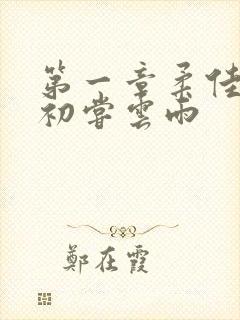 第一章柔佳
初嘗雲雨
鄭在霞